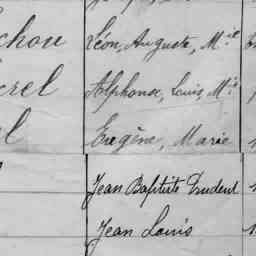 chou Léon, Auguste, M.ie
rel Alphonse, Louis, M.ie
el Eugène, Marie
Jean Baptiste Prudent
Jean Louis